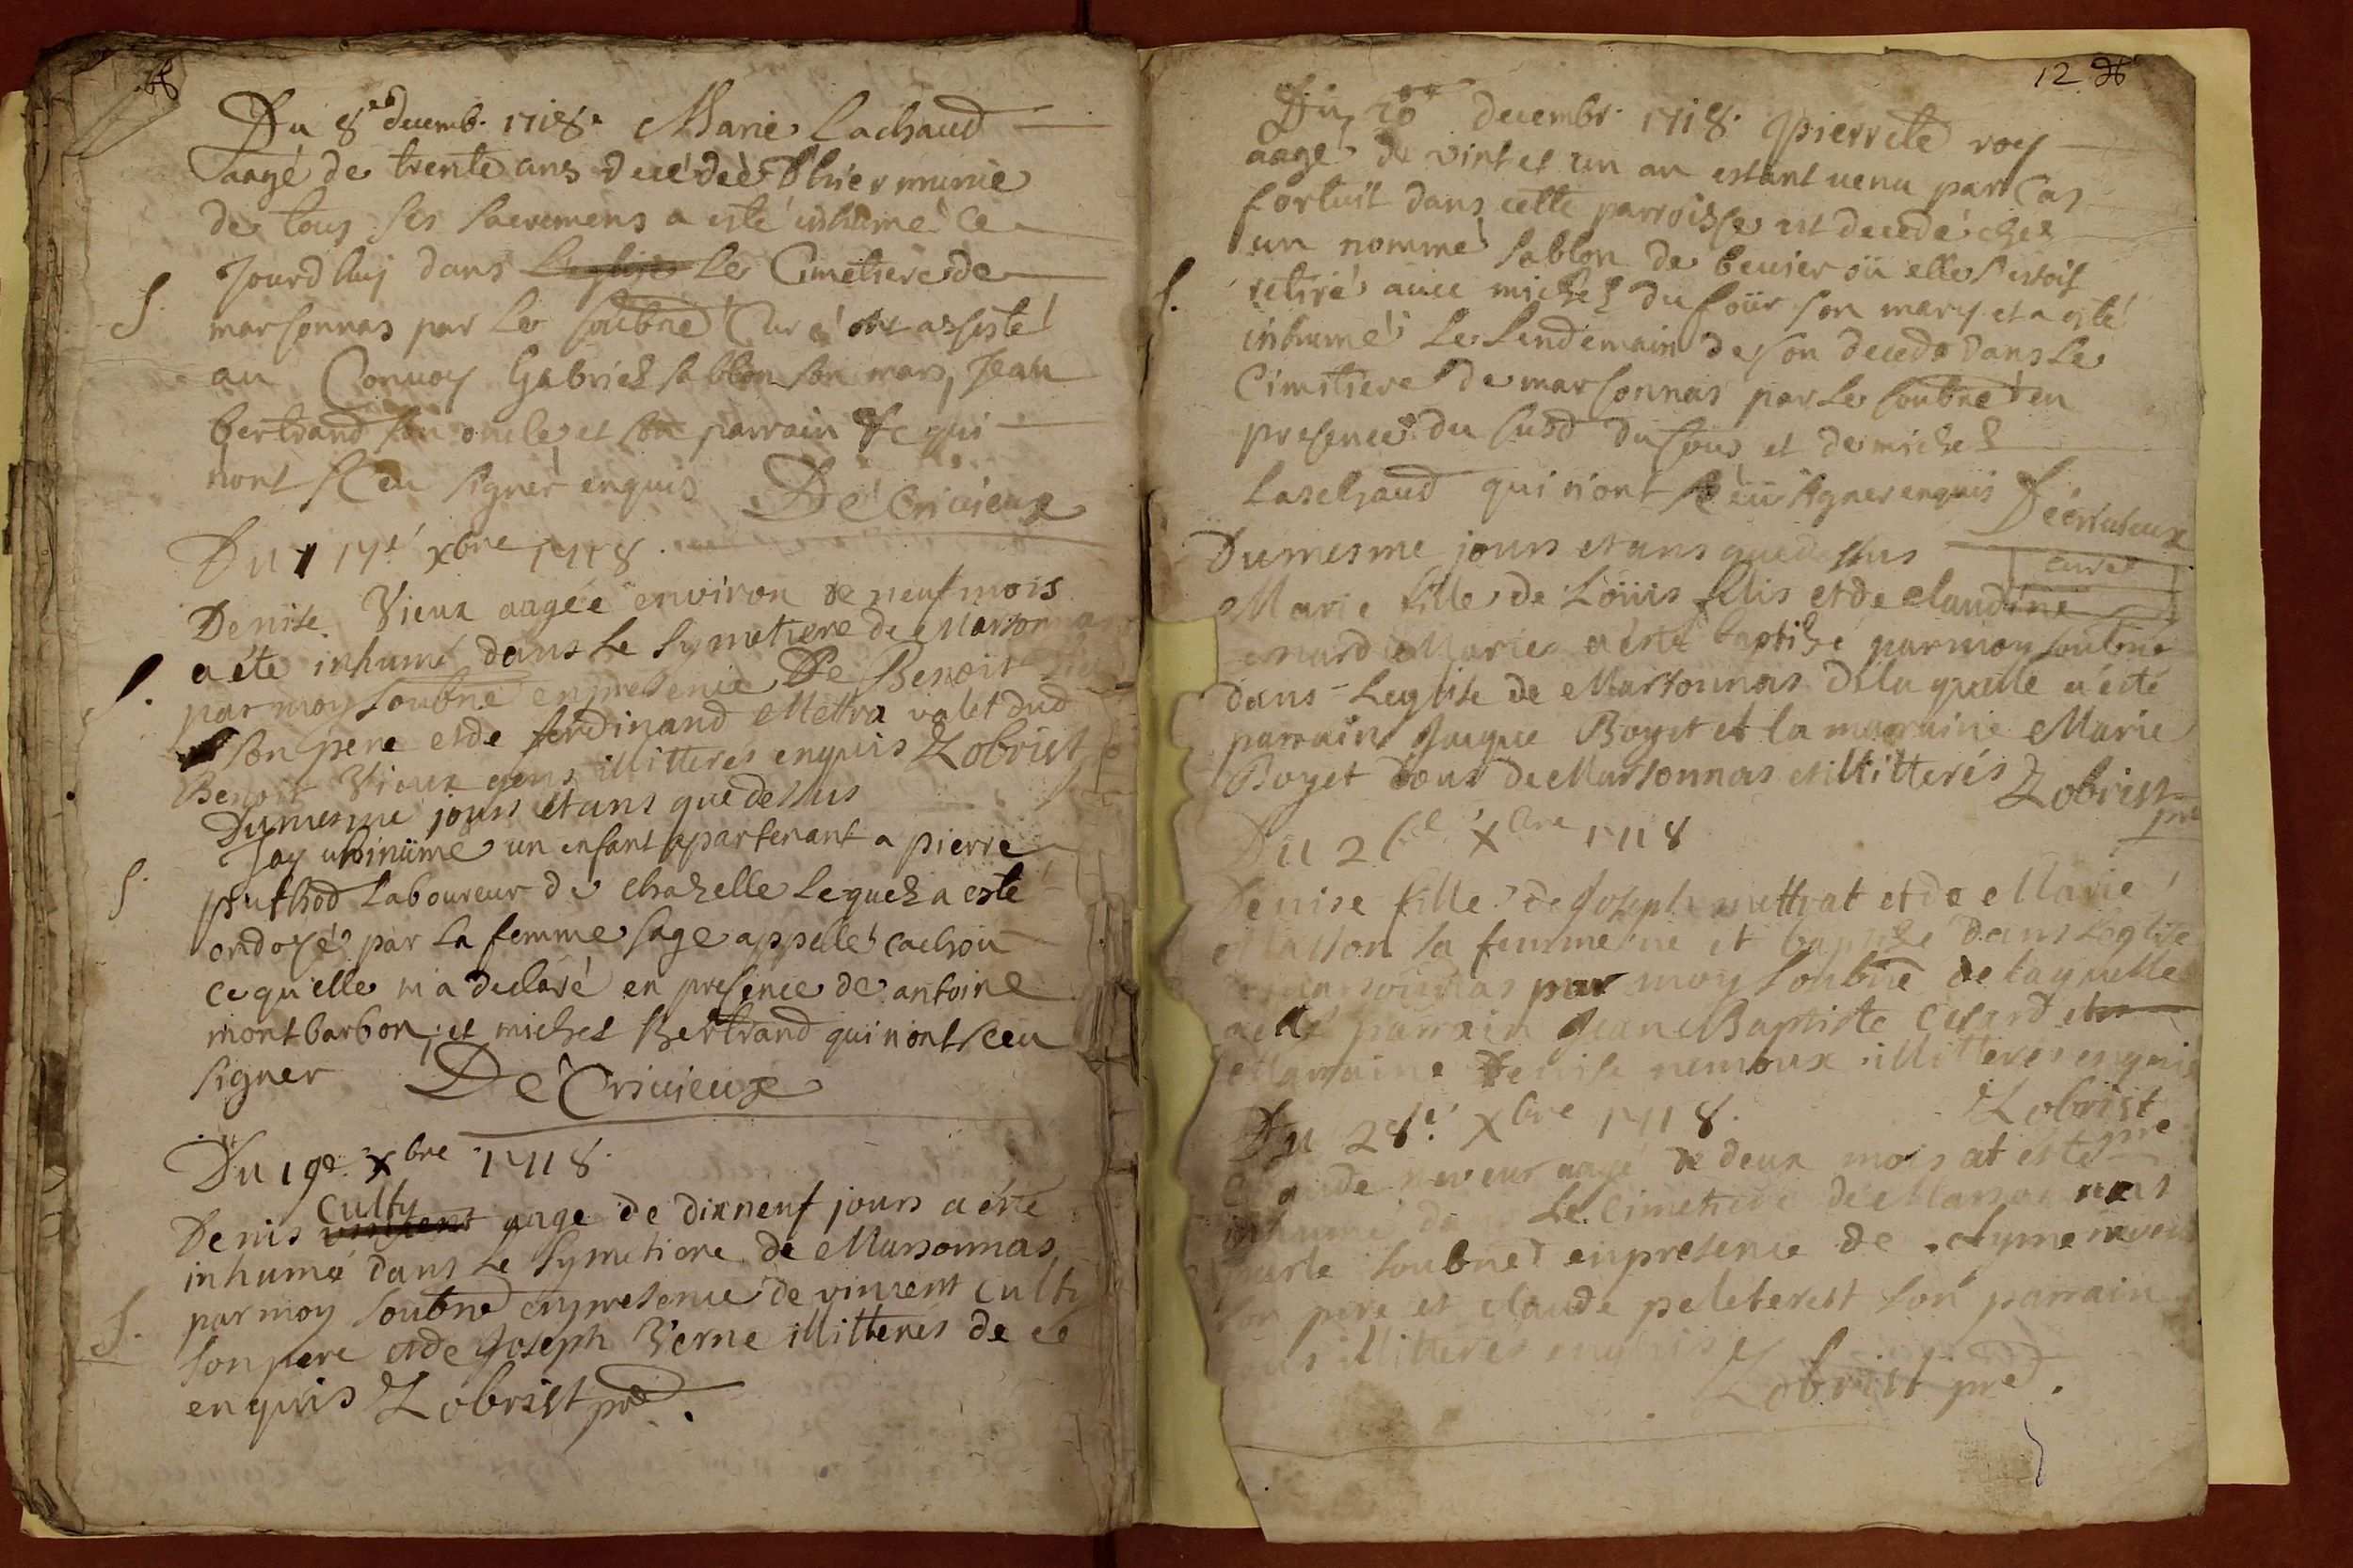 Du 8e decemb. 1718. Marie Lachaud
aagé de trente ans decédeè Dhier munie
de tous ses sacremens a esté inhumé ce
jourdhuy dans le Cimetiere de
marsonnas par le soubné Curé ont assisté
au Convoy Gabriel sablon son mary, Jean
bertrand son oncle et son parrain &c qui
nont sceu signer enquis DéCrivieux
Du 17e xbre 1718.
Denise Vieux aagée environ de neuf mois
a été inhumé dans le symetiere de Marsonnas
par moy soubné enpresence De Benoit
son pere et de ferdinand Mettra valet dud
Benoit Vieux gens illitteres enquis Lobrist
Du mesme jours et ans que dessus
Jay inhumé un enfant apartenant a pierre
puthod Laboureur de chazelle lequel a este
ondoyé par la femme sage appellé cachou
ce qu'elle m'a declaré en presence de antoine
montbarbon, et michel Bertrand qui nont sceu
signer DéCrivieux
Du 19e xbre 1718
culty
Denis aagé de dixneuf jours a été
inhumé dans le symetiere de Marsonnas
par moy soubné enpresence de vincent culty
son pere et de Joseph Verne illitterés de ce
enquis Lobrist pre.
12
Du 20 decembr. 1718. pierrete roy
aagé de vint et un an estant venu par Cas
fortuit dans cette parroisse est decedé chez
un nommé sablon de beuier où elle s'estoit
retiré avec michel du four son mary et a esté
inhumé le lendemain de son deceds dans le
Cimitiere de marsonnas par le soubné en
presence du susd dufour et de michel
Laschaud qui n'ont sceü signer enquis Décrivieux
curé
Du mesme jours et ans que dessus
Marie fille de Loüis felis et de claudine
Marie a été baptisé par moy soubné
dans Leglise de Marsonnas de laquelle a été
parrain Jaque Boyet et la marraine Marie
Boyet tous de Marsonnas et illitterés Lobrist
pre
Du 26e xbre 1718
Denise fille de Joseph mettrat et de Marie
Masson sa femme né et baptisé dans Leglise
de marsonnas par moy soubné de laquelle
a été parrain Jean Baptiste et la
Marraine Denise nemoux illitteres enquis
Lobrist
pre
Du 28e xbre 1718.
Claude neveur aagé de deux mois at esté
inhumé dans le cimetiere de Marsonnas
par le soubné enpresence de
son pere et claude peleterest son parrain
tous illitteres enquis
Lobrist pre.